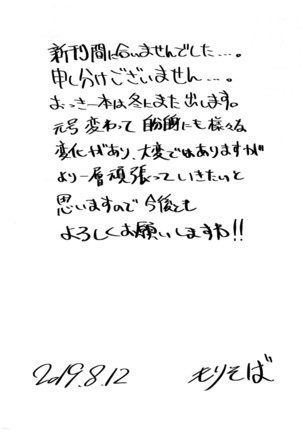 新刊間に合いませんでした…。
申し分けございません…。
おっきー本は冬にまた出します。
元号変わって 的にも様々な
変化があり、大変ではありますが
より一層頑張っていきたいと
思いますので今後とも
よろしくお願いしますね!!
2019.8.12 もりそば